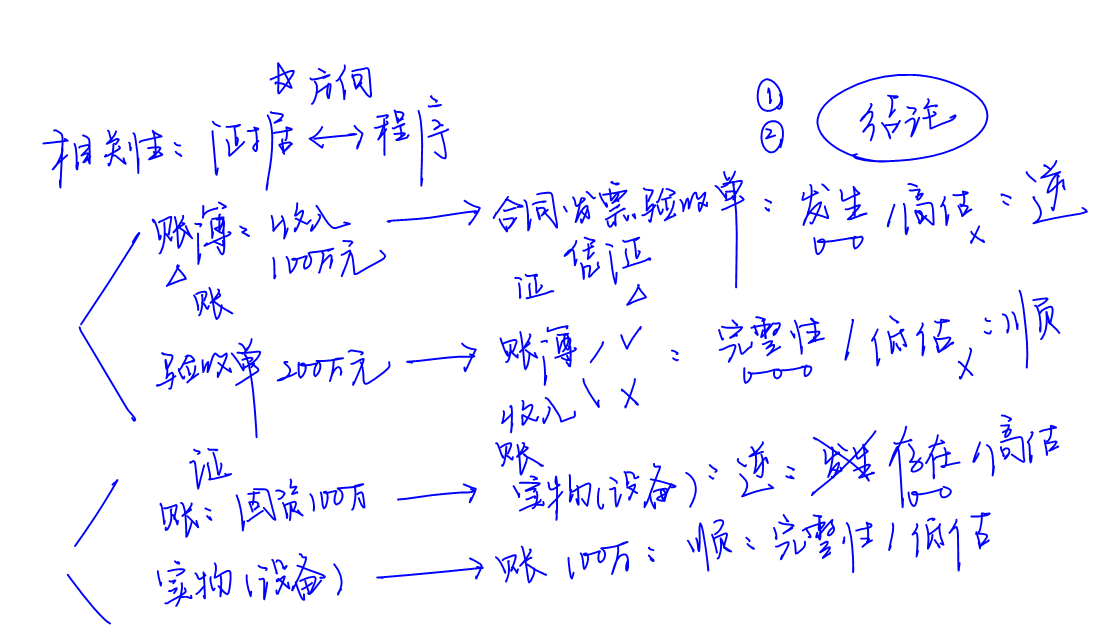 ☆ 方向
① ② 结论
相关性: 证据 ↔ 程序
账簿: 收入 100万元 → 合同 发票 验收单: 发生/高估 x : 逆
△ 账 证 凭证 △
验收单 200万元 → 账簿/ ✓ : 完整性/低估 x : 顺
证 收入 \ x
账
账: 固资100万 → 实物(设备): 逆: 发生 存在/高估
实物(设备) → 账 100万: 顺: 完整性/低估